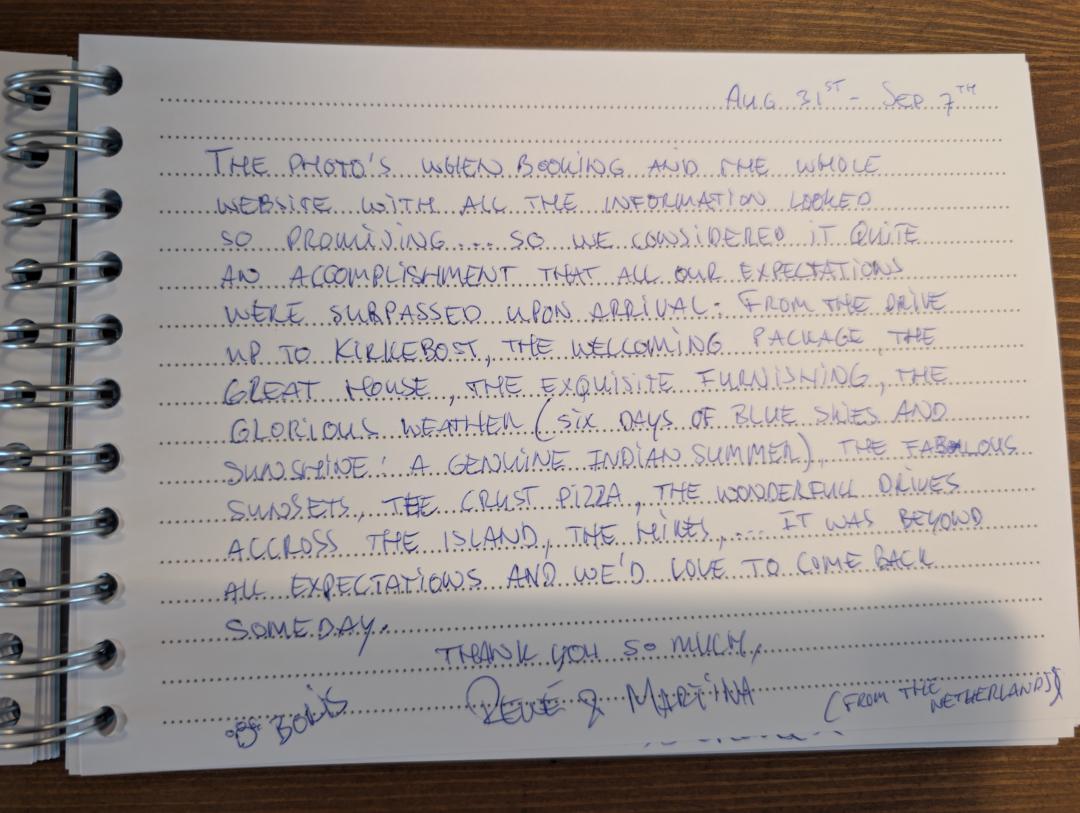 AUG 31ST - SEP 7TH
THE PHOTO'S WHEN BOOKING AND THE WHOLE
WEBSITE WITH ALL THE INFORMATION LOOKED
SO PROMISING.... SO WE CONSIDERED IT QUITE
AN ACCOMPLISHMENT THAT ALL OUR EXPECTATIONS
WERE SURPASSED UPON ARRIVAL: FROM THE DRIVE
UP TO KIRKEBOST, THE WELCOMING PACKAGE, THE
GREAT HOUSE, THE EXQUISITE FURNISHING, THE
GLORIOUS WEATHER (SIX DAYS OF BLUE SKIES AND
SUNSHINE! A GENUINE INDIAN SUMMER), THE FABULOUS
SUNSETS, THE CRUST PIZZA, THE WONDERFULL DRIVES
ACCROSS THE ISLAND, THE HIKES,... IT WAS BEYOND
ALL EXPECTATIONS AND WE'D LOVE TO COME BACK
SOMEDAY.
THANK YOU SO MUCH,
RENÉ & MARTINA
(FROM THE NETHERLANDS)
BORIS